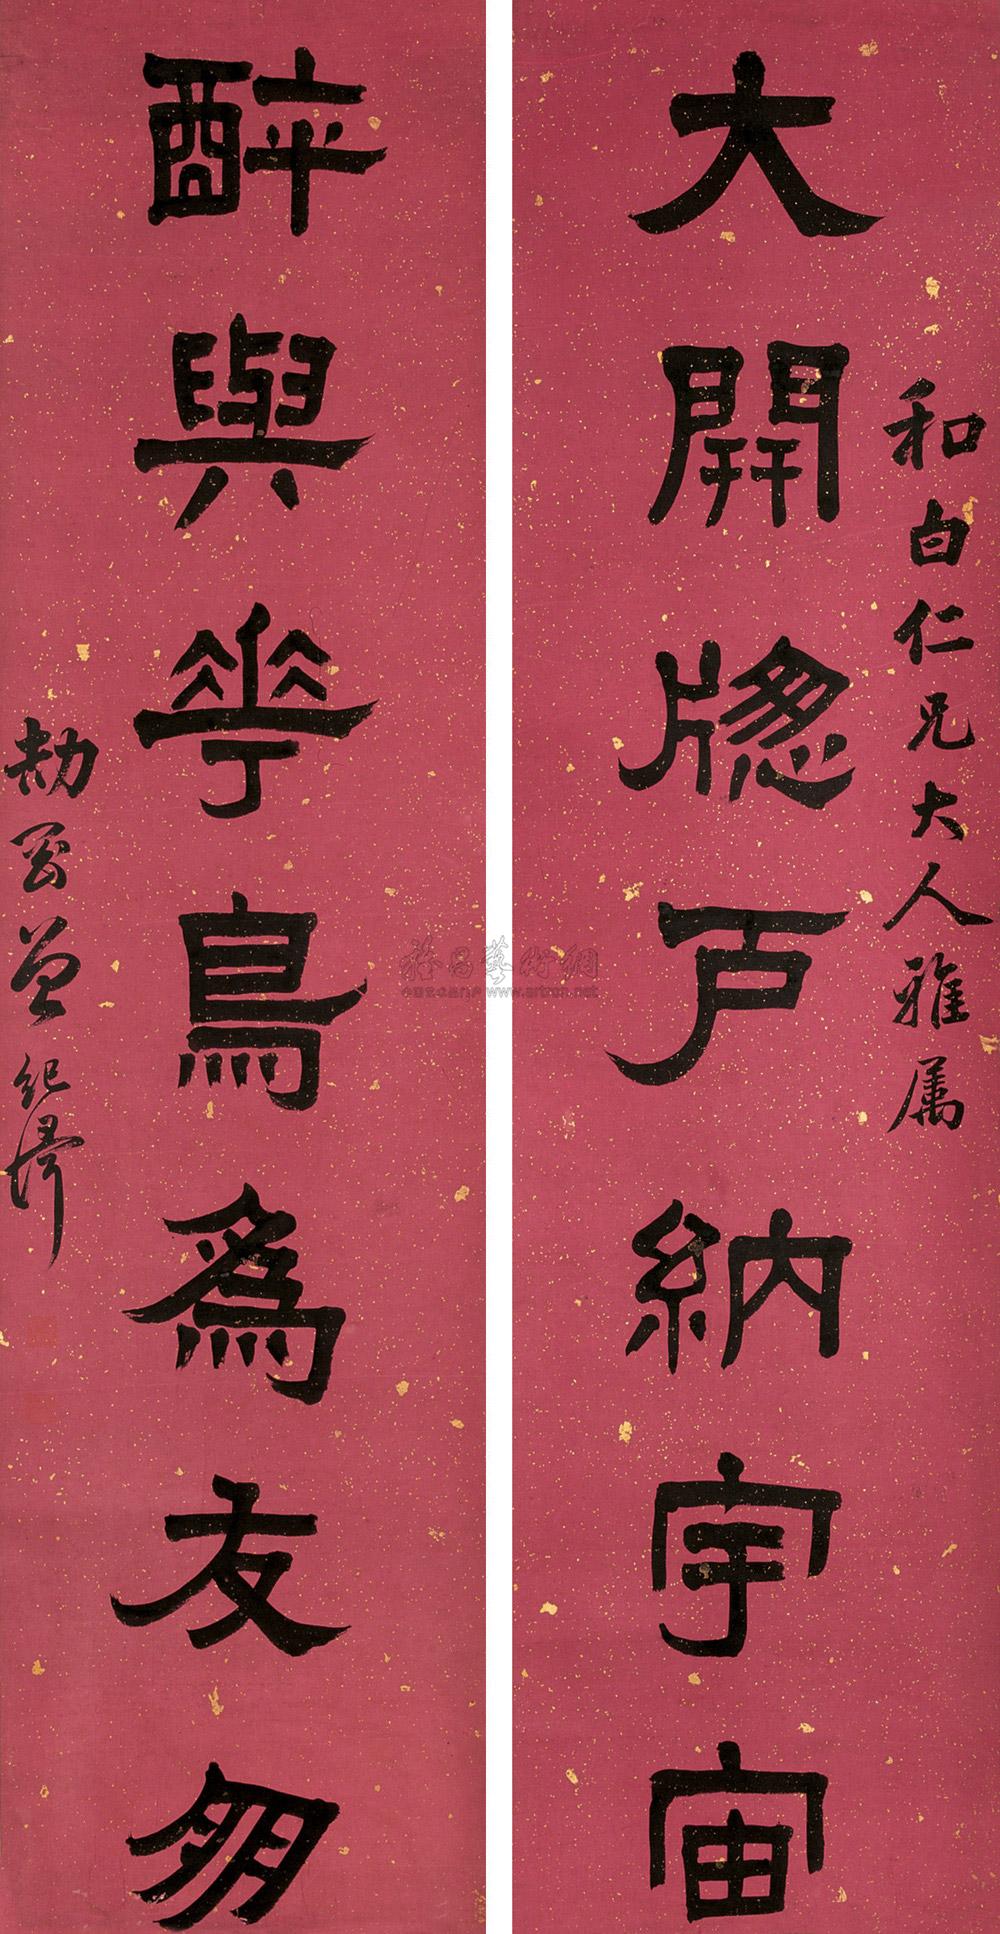 和白仁兄大人雅属
大開牕戶納宇宙
醉與華鳥爲友朋
劼剛曾紀澤
雅昌藝術網
www.artron.net